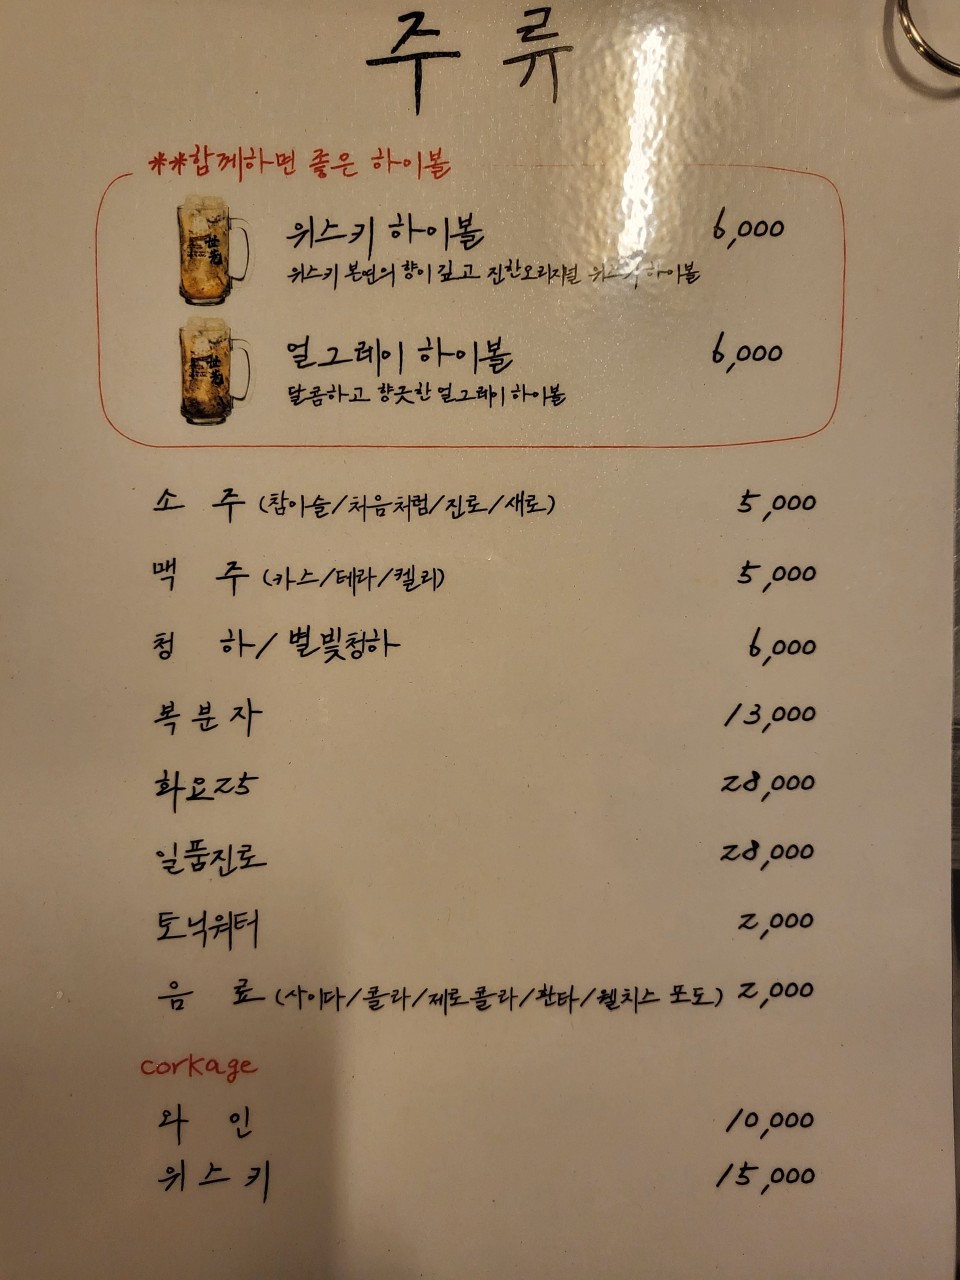 주 류
**함께하면 좋은 하이볼
위스키 하이볼 6,000
위스키 본연의 향이 깊고 진한 오리지널 위스키 하이볼
얼그레이 하이볼 6,000
달콤하고 향긋한 얼그레이 하이볼
소 주 (참이슬/처음처럼/진로/새로) 5,000
맥 주 (카스/테라/켈리) 5,000
청 하/별빛청하 6,000
복분자 13,000
화요25 28,000
일품진로 28,000
토닉워터 2,000
음 료 (사이다/콜라/제로콜라/환타/웰치스 포도) 2,000
corkage
와 인 10,000
위스키 15,000